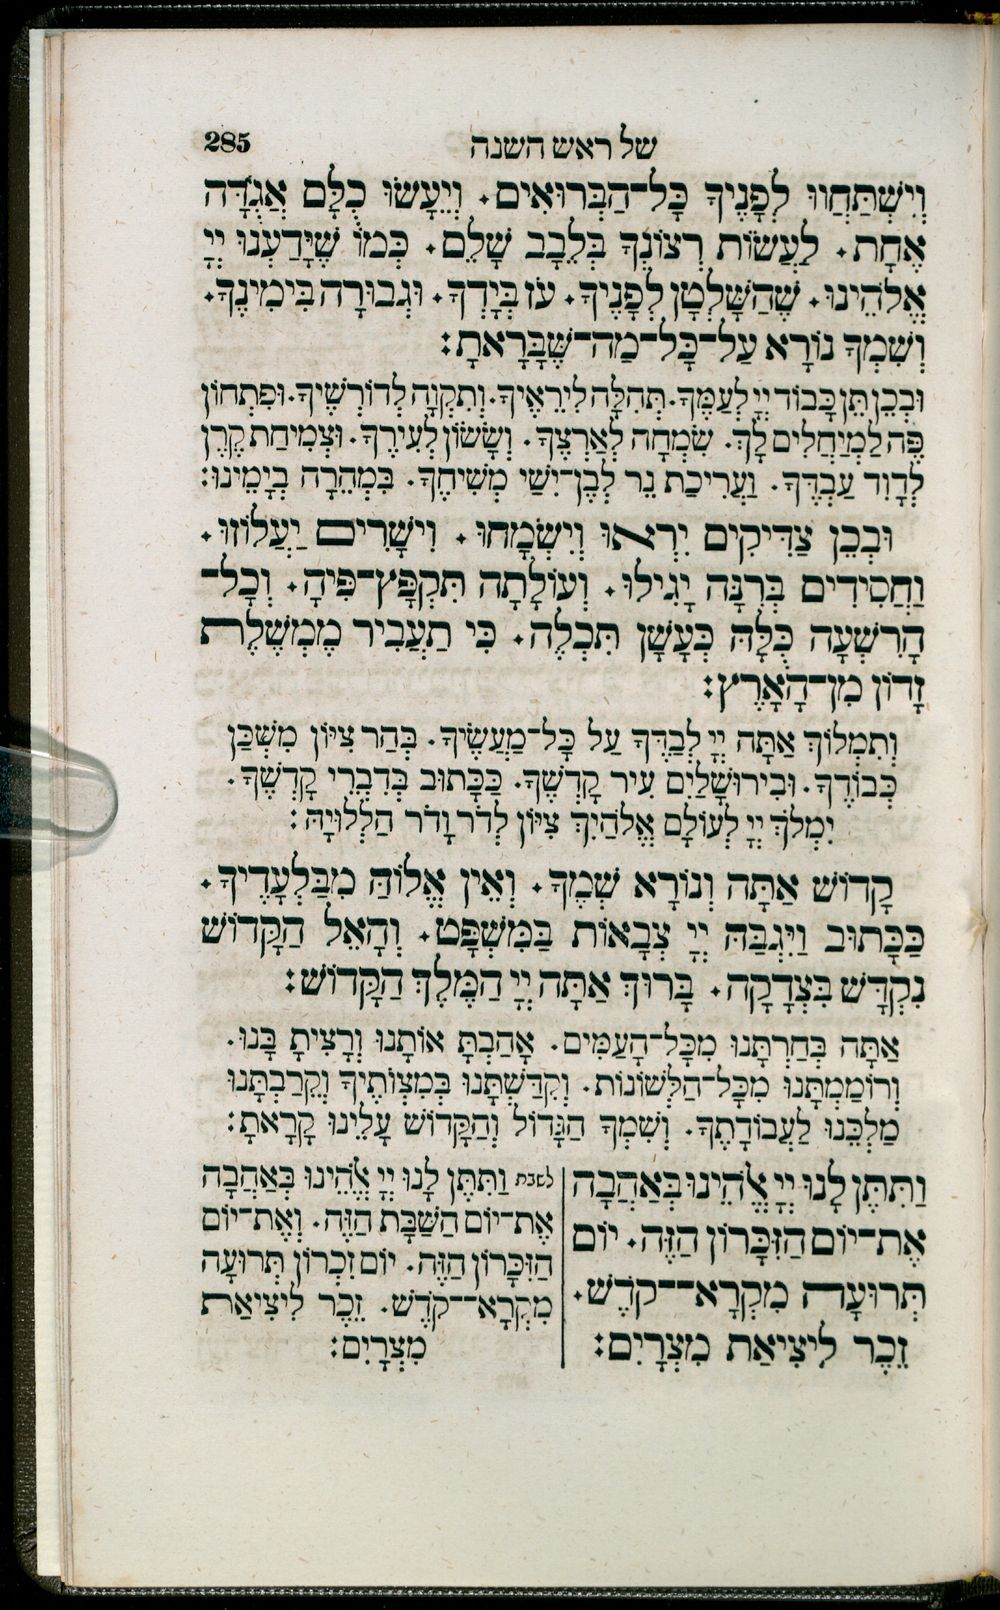 של ראש השנה 285
וְיִשְׁתַּחֲווּ לְפָנֶיךָ כָּל־הַבְּרוּאִים. וְיֵעָשׂוּ כֻלָּם אֲגֻדָּה
אֶחָת. לַעֲשׂוֹת רְצוֹנְךָ בְּלֵבָב שָׁלֵם. כְּמוֹ שֶׁיָּדַעְנוּ יְיָ
אֱלֹהֵינוּ. שֶׁהַשָּׁלְטָן לְפָנֶיךָ. עֹז בְּיָדְךָ. וּגְבוּרָה בִּימִינֶךָ.
וְשִׁמְךָ נוֹרָא עַל־כָּל־מַה־שֶּׁבָּרָאתָ:
וּבְכֵן תֵּן כָּבוֹד יְיָ לְעַמֶּךָ. תְּהִלָּה לִירֵאֶיךָ. וְתִקְוָה לְדוֹרְשֶׁיךָ. וּפִתְחוֹן
פֶּה לַמְיַחֲלִים לָךְ. שִׂמְחָה לְאַרְצֶךָ. וְשָׂשׂוֹן לְעִירֶךָ. וּצְמִיחַת קֶרֶן
לְדָוִד עַבְדֶּךָ. וַעֲרִיכַת נֵר לְבֶן־יִשַׁי מְשִׁיחֶךָ. בִּמְהֵרָה בְיָמֵינוּ:
וּבְכֵן צַדִּיקִים יִרְאוּ וְיִשְׂמָחוּ. וִישָׁרִים יַעֲלוֹזוּ.
וַחֲסִידִים בְּרִנָּה יָגִילוּ. וְעוֹלָתָה תִּקְפָּץ־פִּיהָ. וְכָל־
הָרִשְׁעָה כֻּלָּהּ כְּעָשָׁן תִּכְלֶה. כִּי תַעֲבִיר מֶמְשֶׁלֶת
זָדוֹן מִן־הָאָרֶץ:
וְתִמְלוֹךְ אַתָּה יְיָ לְבַדֶּךָ עַל כָּל־מַעֲשֶׂיךָ. בְּהַר צִיּוֹן מִשְׁכַּן
כְּבוֹדֶךָ. וּבִירוּשָׁלַיִם עִיר קָדְשֶׁךָ. כַּכָּתוּב בְּדִבְרֵי קָדְשֶׁךָ.
יִמְלֹךְ יְיָ לְעוֹלָם אֱלֹהַיִךְ צִיּוֹן לְדֹר וָדֹר הַלְלוּיָהּ:
קָדוֹשׁ אַתָּה וְנוֹרָא שְׁמֶךָ. וְאֵין אֱלוֹהַּ מִבַּלְעָדֶיךָ.
כַּכָּתוּב וַיִּגְבַּהּ יְיָ צְבָאוֹת בַּמִּשְׁפָּט. וְהָאֵל הַקָּדוֹשׁ
נִקְדָּשׁ בִּצְדָקָה. בָּרוּךְ אַתָּה יְיָ הַמֶּלֶךְ הַקָּדוֹשׁ:
אַתָּה בְּחַרְתָּנוּ מִכָּל־הָעַמִּים. אָהַבְתָּ אוֹתָנוּ וְרָצִיתָ בָּנוּ.
וְרוֹמַמְתָּנוּ מִכָּל־הַלְּשׁוֹנוֹת. וְקִדַּשְׁתָּנוּ בְּמִצְוֹתֶיךָ וְקֵרַבְתָּנוּ
מַלְכֵּנוּ לַעֲבוֹדָתֶךָ. וְשִׁמְךָ הַגָּדוֹל וְהַקָּדוֹשׁ עָלֵינוּ קָרָאתָ:
וַתִּתֶּן לָנוּ יְיָ אֱלֹהֵינוּ בְּאַהֲבָה
אֶת־יוֹם הַזִּכָּרוֹן הַזֶּה. יוֹם
תְּרוּעָה מִקְרָא־קֹדֶשׁ.
זֵכֶר לִיצִיאַת מִצְרָיִם:
לשבת וַתִּתֶּן לָנוּ יְיָ אֱלֹהֵינוּ בְּאַהֲבָה
אֶת־יוֹם הַשַּׁבָּת הַזֶּה. וְאֶת־יוֹם
הַזִּכָּרוֹן הַזֶּה. יוֹם זִכְרוֹן תְּרוּעָה
מִקְרָא־קֹדֶשׁ. זֵכֶר לִיצִיאַת
מִצְרָיִם: